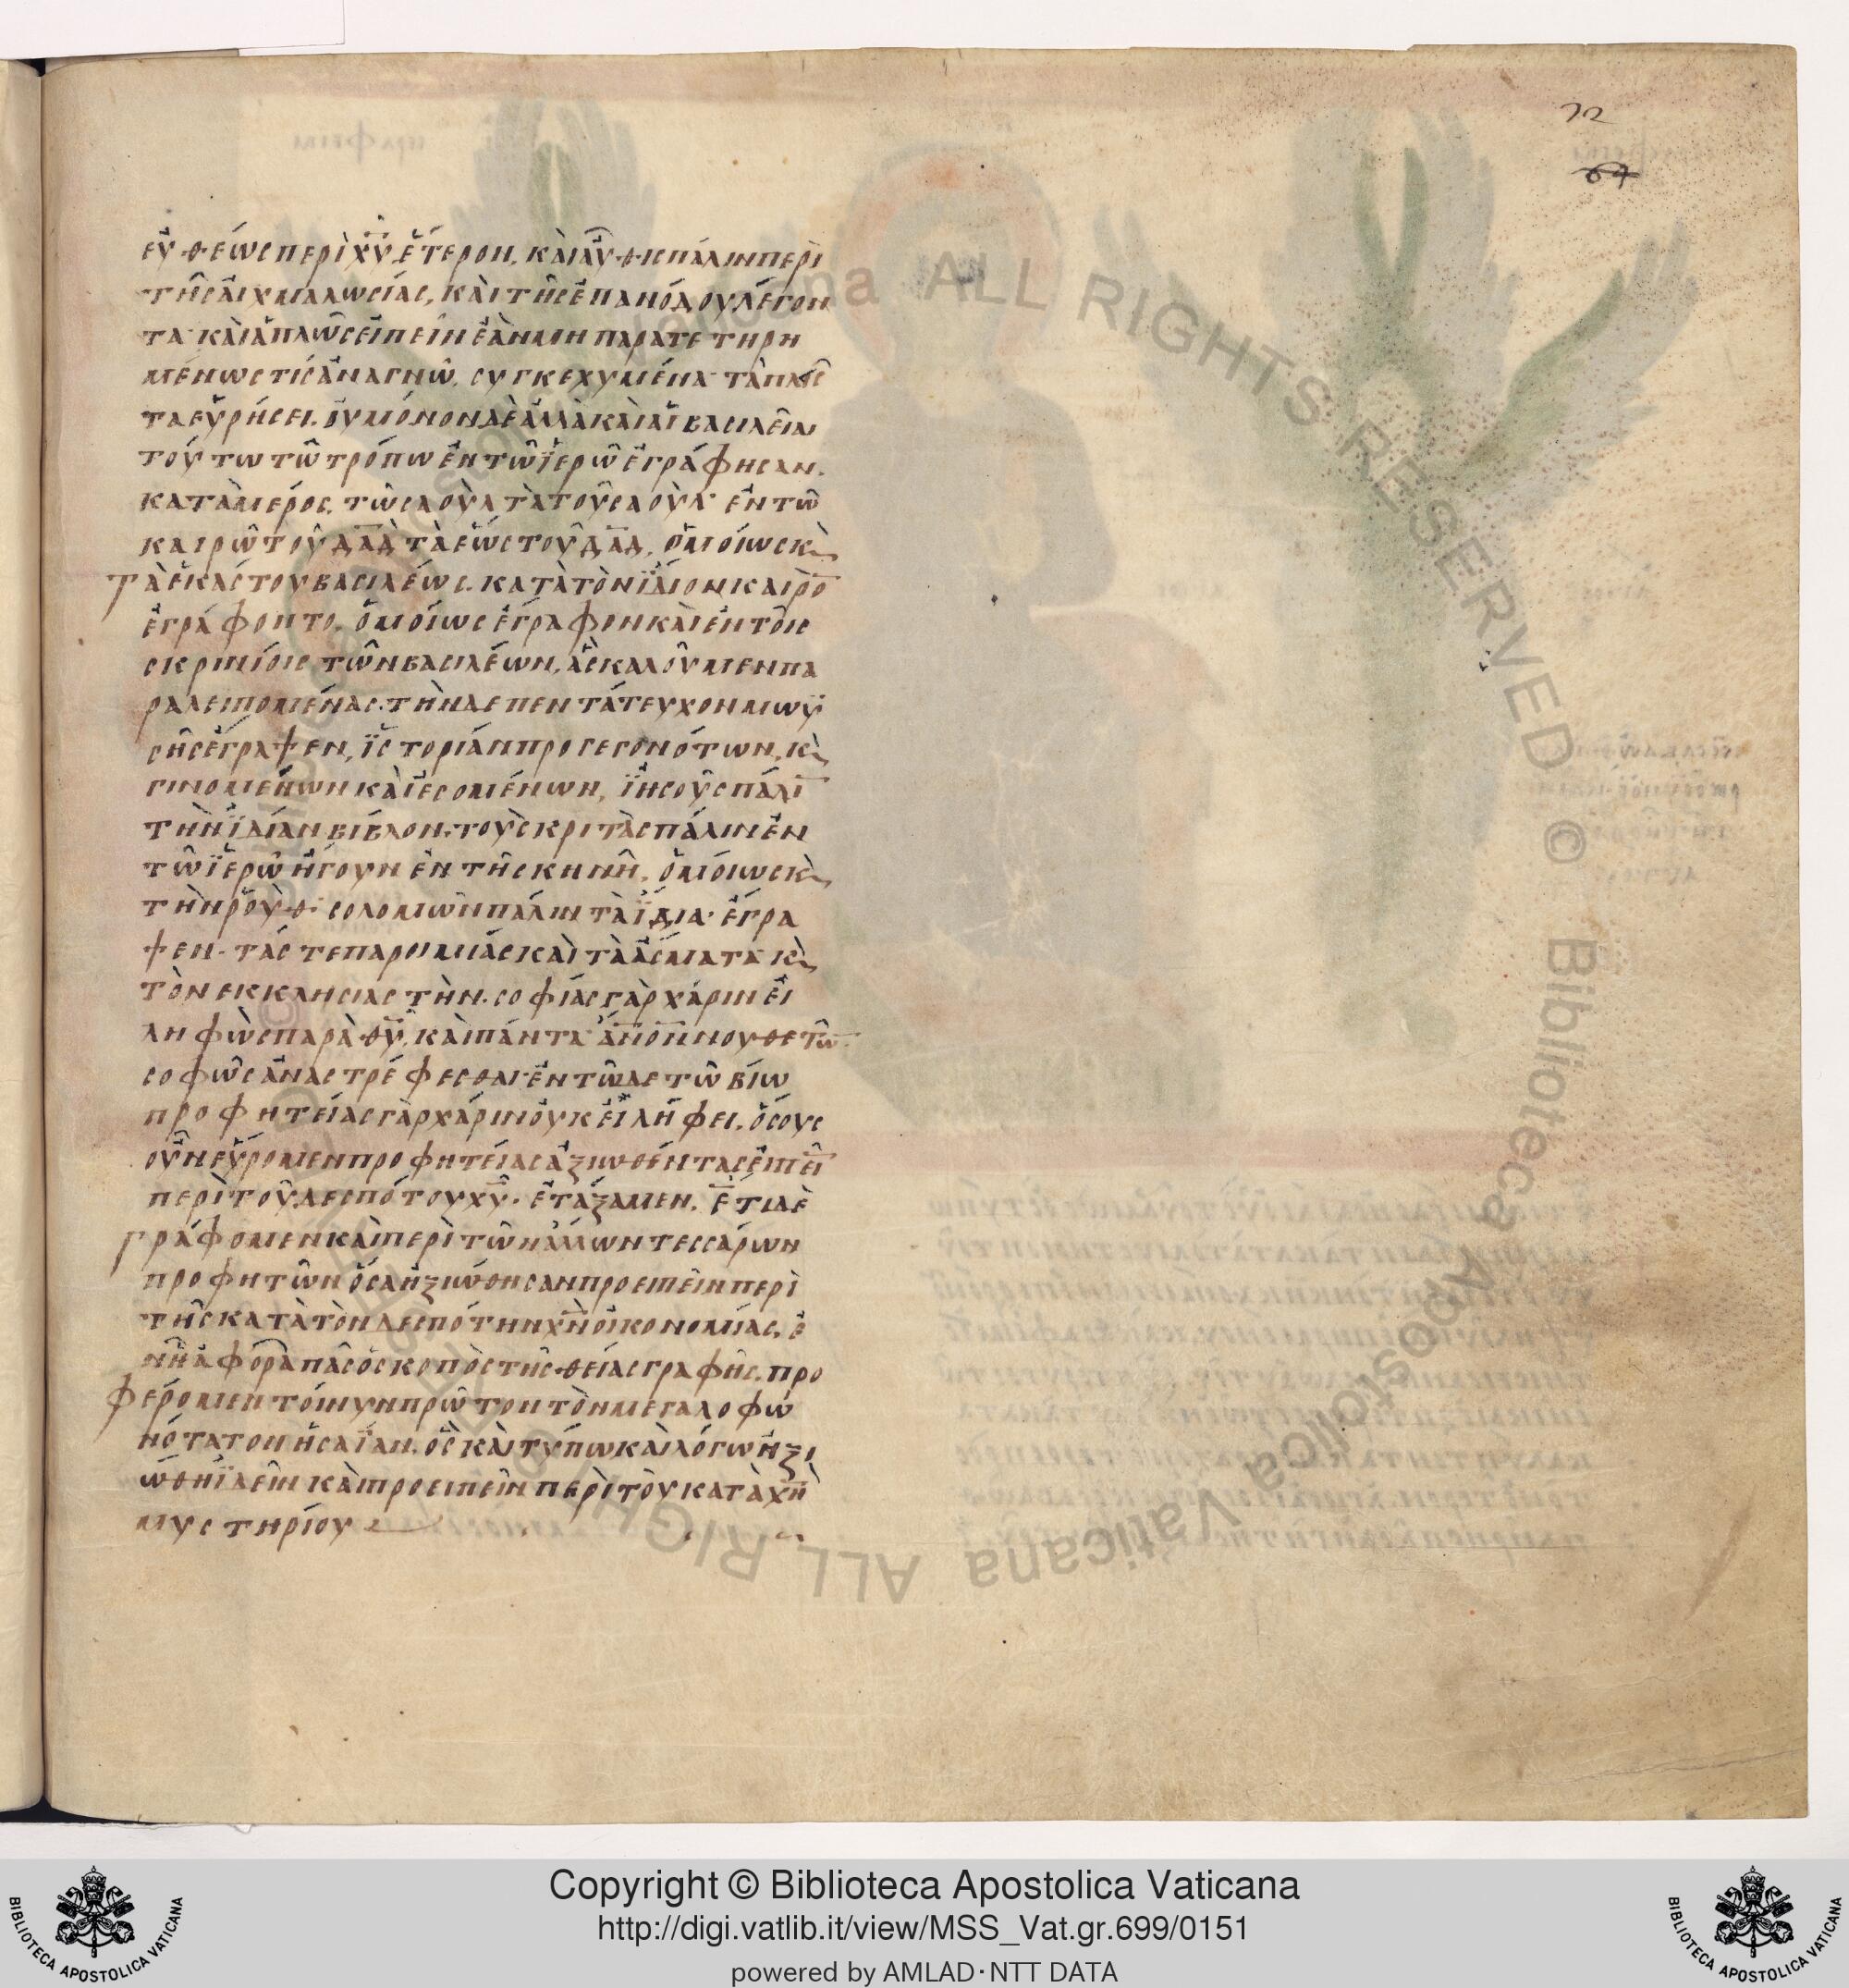 72
64
εὐθέως περὶ χῡ ἕτερον, καὶ αὖθις πάλιν περὶ
τῆς αἰχμαλωσίας, καὶ τῆς ἐπανόδου λέγον
τα· καὶ ἁπλῶς εἰπεῖν ἐὰν μὴ παρατετηρη
μένως τίς ἀναγνῶ, συγκεχυμένα τὰ πάν
τα εὑρήσει. οὐ μόνον δὲ ἀλλὰ καὶ αἱ βασιλεῖαι
τούτω τῶ τρόπω ἐν τῶ ϊερῶ ἐγράφησαν.
κατὰ μέρος. τῶ σαοὺλ τὰ τοῦ σαούλ· ἐν τῶ
καιρῶ τοῦ δᾱδ τὰ ἕως τοῦ δᾱδ, ὁμοίως κ̀
τὰ ἑκάστου βασιλέως. κατὰ τὸν ϊδιον καιρὸ̄
ἐγράφοντο. ὁμοίως ἔγραφον καὶ ἐν τοῖς
σκρινίοις τῶν βασιλέων, ἃς καλοῦμεν πα
ραλειπομένας. τὴν δὲ πεντάτευχον μωϋ
σῆς ἔγραψεν, ϊστορίαν προγεγονότων, κ̀
γινομένων καὶ ἐσομένων, ϊησοῦς πάλῑ
τὴν ϊδίαν βίβλον. τοὺς κριτὰς πάλιν ἐν
τῶ ϊερῶ ἤγουν ἐν τῆ σκηνῆ, ὁμοίως κ̀
τὴν ῥούθ· σολομὼν πάλιν τὰ ϊδια· ἔγρα
ψεν· τάς τε παροιμίας καὶ τὰ ἄσματα κ̀
τὸν εκκλησιαστὴν. σοφίας γὰρ χάριν εἰ
ληφὼς παρὰ θῡ, καὶ πάντα ἄνο̄ν νουθετῶ̄
σοφῶς ἀναστρέφεσθαι ἐν τῶδε τῶ βίω
προφητείας γὰρ χάριν οὐκ εἰλήφει. ὅσους
οὖν εὕρομεν προφητείας ἀξιωθέντας εἰπεῖ̄
περὶ τοῦ δεσπότου χῡ· ἐτάξαμεν. ἔτι δὲ
γράφομεν καὶ περὶ τῶν ἄλλων τεσσάρων
προφητῶν ὅσα ἠξιώθησαν προειπεῖν περὶ
τῆς κατὰ τὸν δεσπότην χν̄ οἰκονομίας. ἐ
ν ἧ ἀφορᾶ πᾶς ὁ σκοπὸς τῆς θείας γραφῆς. προ
φέρομεν τοίνυν πρῶτον τὸν μεγαλοφω
νότατον ἡσαΐαν. ὃς καὶ τύπω καὶ λόγω ἠξι
ώθη ϊδεῖν καὶ προειπεῖν περὶ τοῦ κατὰ χν̄
μυστηρίου
© Biblioteca Apostolica Vaticana ALL RIGHTS RESERVED © Biblioteca Apostolica Vaticana ALL RIGHTS RESERVED
BIBLIOTECA APOSTOLICA VATICANA
Copyright © Biblioteca Apostolica Vaticana
http://digi.vatlib.it/view/MSS_Vat.gr.699/0151
powered by AMLAD·NTT DATA
BIBLIOTECA APOSTOLICA VATICANA